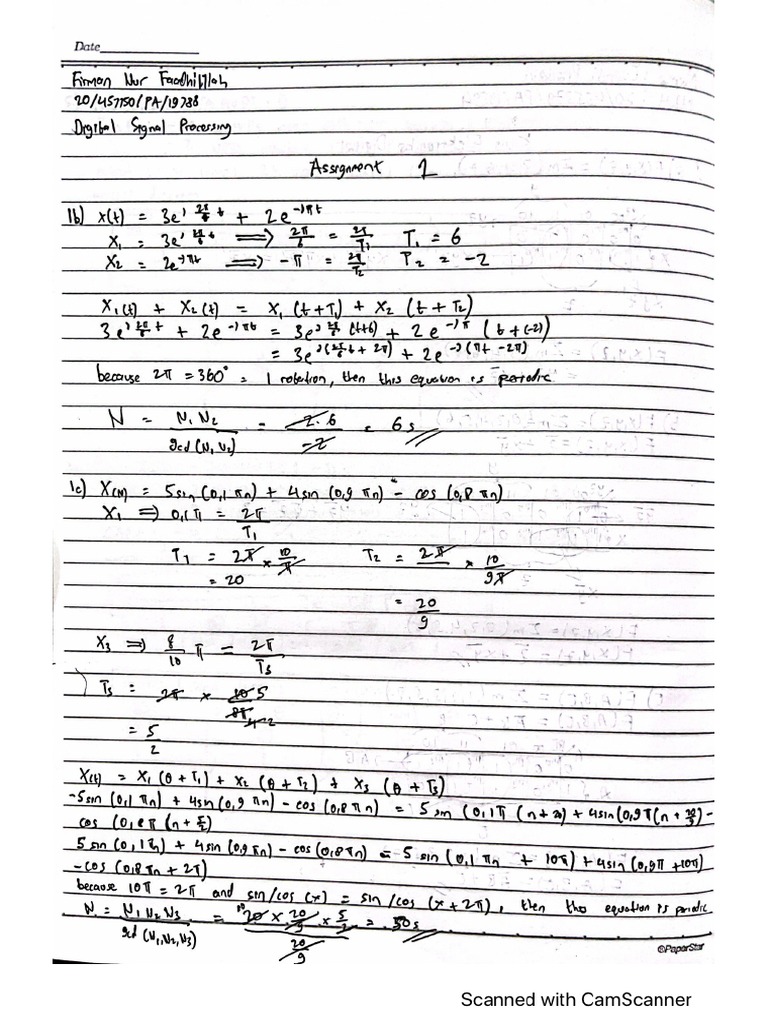 Date
Firman Nur Fadhilllah
20/457750/PA/19788
Digital Signal Processing
Assignment 1
1b) x(t) = 3e^j 2π/6 t + 2e^-jπt
X₁ = 3e^j 2π/6 t ⟹ 2π/6 = 2π/T₁ T₁ = 6
X₂ = 2e^-jπt ⟹ -π = 2π/T₂ T₂ = -2
X₁(t) + X₂(t) = X₁(t+T₁) + X₂(t+T₂)
3e^j 2π/6 t + 2e^-jπt = 3e^j 2π/6 (t+6) + 2e^-jπ (t+(-2))
= 3e^j(2π/6 t + 2π) + 2e^-j(πt - 2π)
because 2π = 360° = 1 rotation, then this equation is periodic
N = N₁ N₂ / gcd(N₁ N₂) = -2.6 / -2 = 6s
1c) X(n) = 5sin(0,1πn) + 4sin(0,9πn) - cos(0,8πn)
X₁ ⟹ 0,1π = 2π/T₁
T₁ = 2π × 10/π T₂ = 2π × 10/9π
= 20 = 20/9
X₃ ⟹ 8/10 π = 2π/T₃
T₃ = 2π × 10 5 / 8π 4 2
= 5/2
X(t) = X₁(θ+T₁) + X₂(θ+T₂) + X₃(θ+T₃)
-5sin(0,1πn) + 4sin(0,9πn) - cos(0,8πn) = 5sin(0,1π(n+20) + 4sin(0,9π(n+20/9) -
cos(0,8π(n+5/2)
5sin(0,1πn) + 4sin(0,9πn) - cos(0,8πn) = 5sin(0,1πn + 10π) + 4sin(0,9π + 10π)
-cos(0,8πn + 2π)
because 10π = 2π and sin/cos(x) = sin/cos(x+2π), then this equation is periodic
N = N₁N₂N₃ / gcd(N₁,N₂,N₃) = 20 × 20/9 × 5/2 / 20/9 = 50s
©PaperStar
Scanned with CamScanner